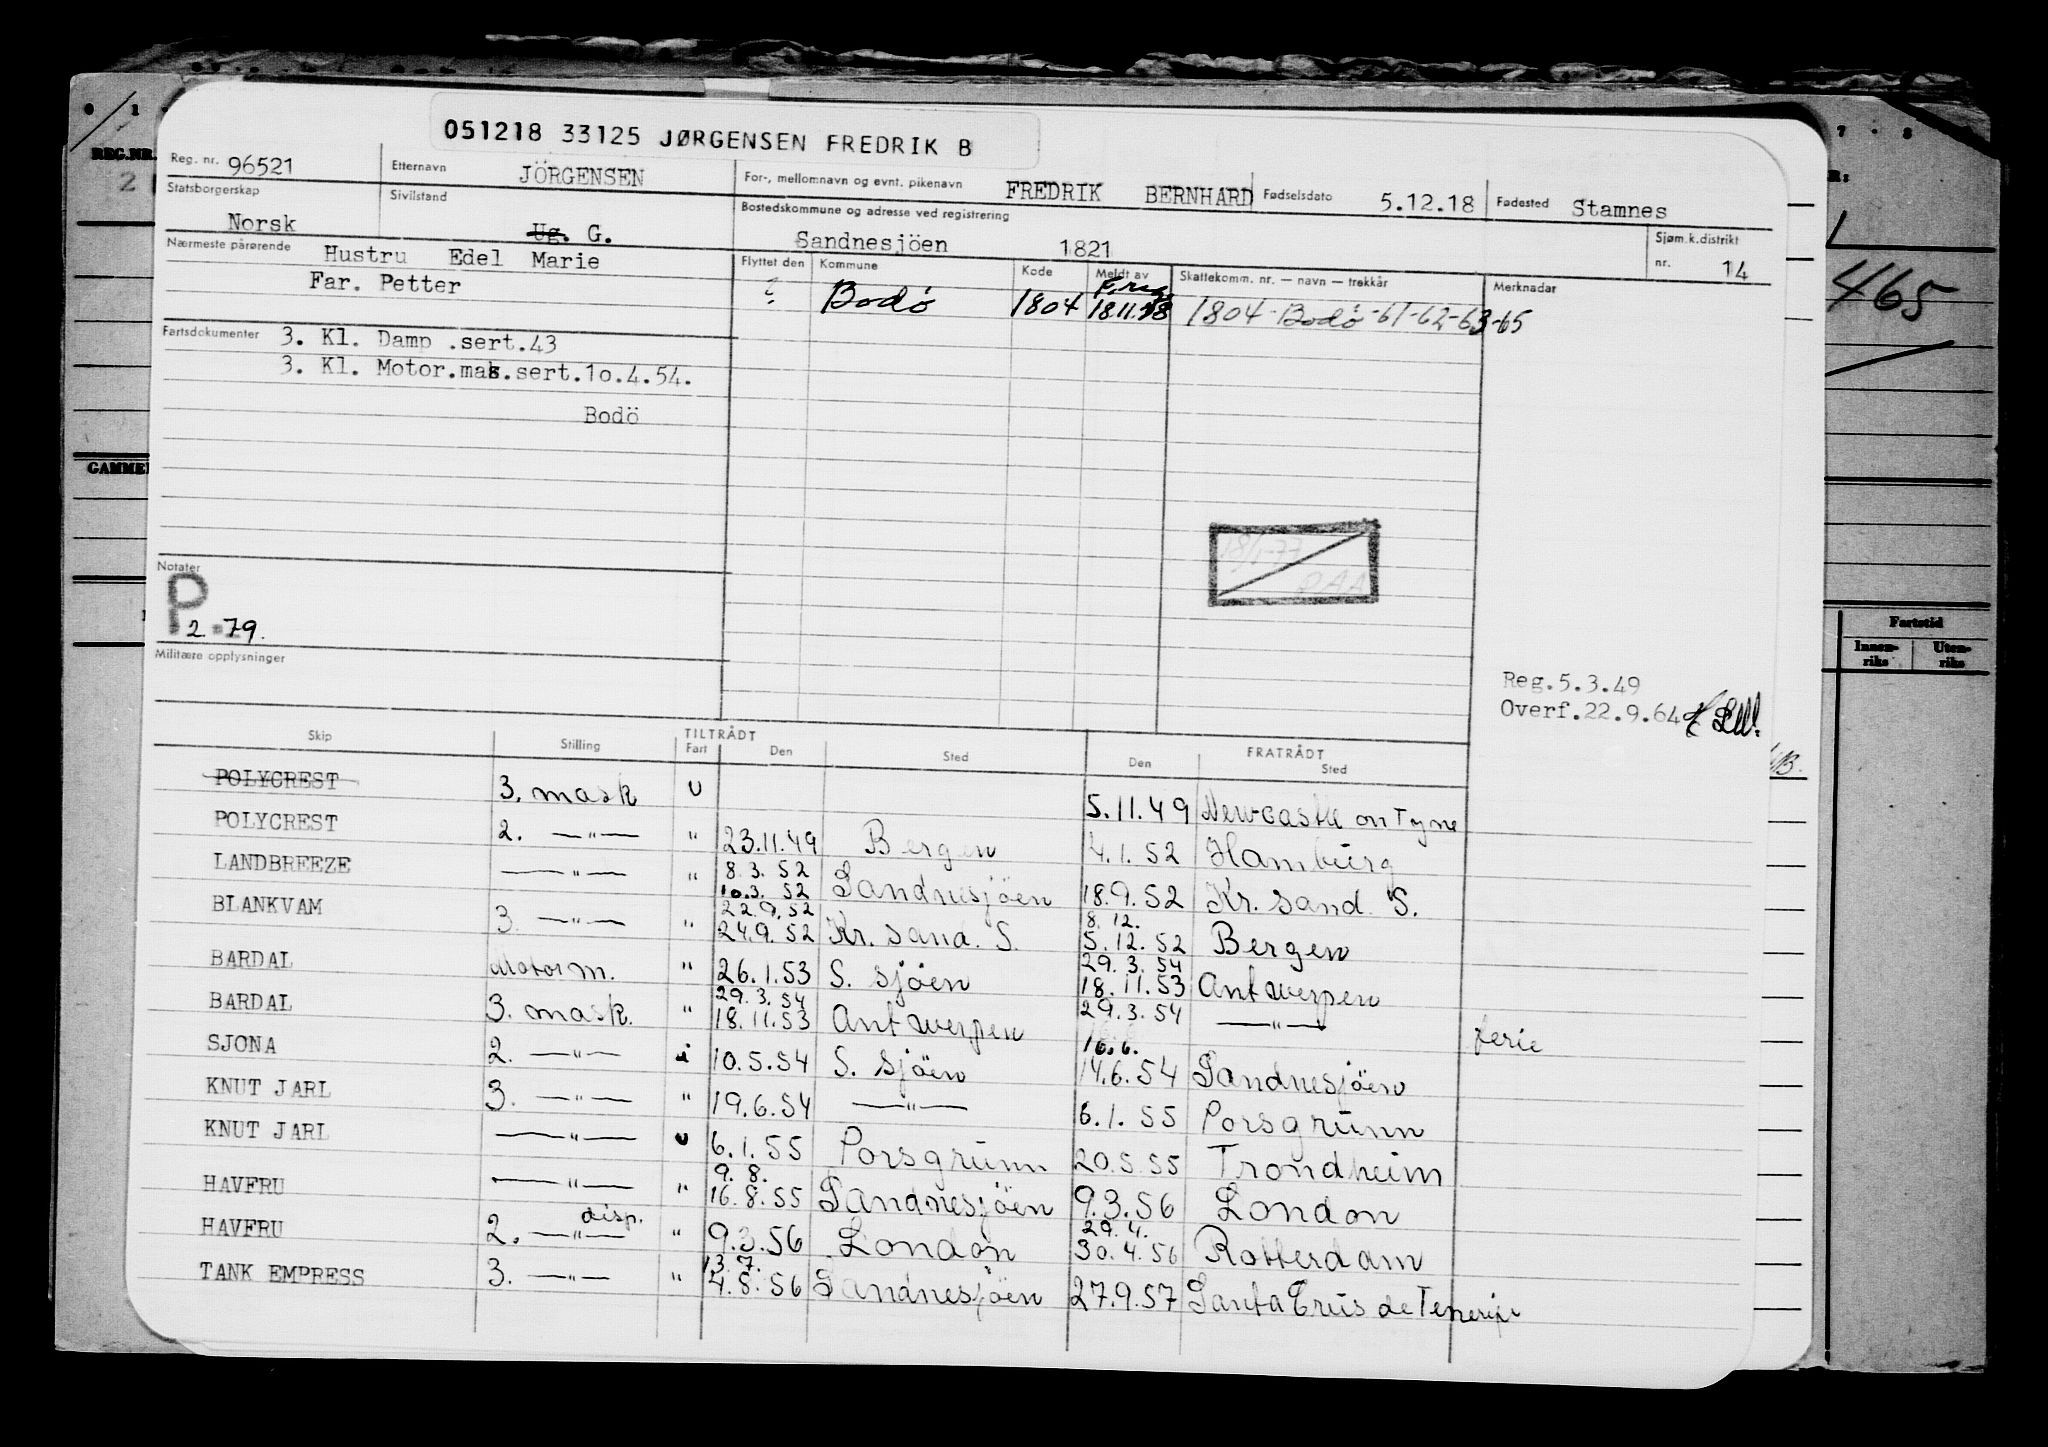 051218 33125 JØRGENSEN FREDRIK B
Reg. nr. 96521 Etternavn JÖRGENSEN For-, mellomnavn og evnt. pikenavn FREDRIK BERNHARD Fødselsdato 5.12.18 Fødested Stamnes
Statsborgerskap Norsk Sivilstand Ug. G. Bostedskommune og adresse ved registrering Sandnesjöen 1821 Sjøm.k.distrikt nr. 14
Nærmeste pårørende Hustru Edel Marie
Far. Petter
Flyttet den Kommune Kode Meldt av Skattekomm. nr. — navn — trekkår Merknadar
? Bodø 1804 18.11.58 1804 Bodø -61-62-63-65
Fartsdokumenter 3. Kl. Damp .sert.43
3. Kl. Motor.mask.sert.1o.4.54.
Bodö
Notater
P
2 79.
Militære opplysninger
18/1-77
Reg.5.3.49
Overf.22.9.64
Skip Stilling TILTRÅDT Fart Den Sted FRATRÅDT Den Sted
POLYCREST 3. mask U 5.11.49 Newcastle on Tyne
POLYCREST 2. —"— " 23.11.49 Bergen 4.1.52 Hamburg
LANDBREEZE —"— " 8.3.52 10.3.52 Sandnesjöen 18.9.52 Kr. sand. S.
BLANKVAM 3. —"— " 22.9.52 24.9.52 Kr. sand. S. 8.12. 5.12.52 Bergen
BARDAL Motorm. " 26.1.53 S. sjöen 29.3.54 18.11.53 Antwerpen
BARDAL 3. mask. " 29.3.54 18.11.53 Antwerpen 29.3.54 —"— ferie
SJONA 2. —"— i 10.5.54 S. sjöen 16.6. 14.6.54 Sandnesjöen
KNUT JARL 3. —"— " 19.6.54 —"— 6.1.55 Porsgrunn
KNUT JARL —"— U 6.1.55 Porsgrunn 20.5.55 Trondheim
HAVFRU —"— " 9.8. 16.8.55 Sandnesjöen 9.3.56 London
HAVFRU 2. —"— disp. " 9.3.56 London 29.4. 30.4.56 Rotterdam
TANK EMPRESS 3. —"— " 13.7. 4.8.56 Sandnesjöen 27.9.57 Santa Crus de Tenerife
0 1
REG.NR.
2
GAMMEL
7 8
465
Fartstid
Innenriks Utenriks